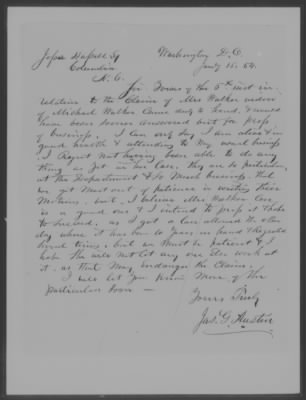 Washington D.C.
Jany 15. 54.
Columbia
N.C.
Yours of the 5th inst in
relation to the Claim of Mrs Walker widow
of Michael Walker Came duly to hand, & would
have been sooner answered but for press
of business. I Can only say I am alive & in
good health & attending to my usual business
I Regret not having been able to do any
thing as yet in the Case. they are so
at the Department & so Much business that
we get most out of patience in waiting their
Motions. but I believe Mrs Walkers Case
is a good one & I intend to press it & hope
to succeed. as I got a Case allowed the other
day where it has been 10 years in hand & rejected
several times. but we Must be patient & I
hope she will not let any one else work at
it. as that May endanger the Claim.
I will let you know More of the
particulars soon —
Yours Truly
Jas. G. Austin